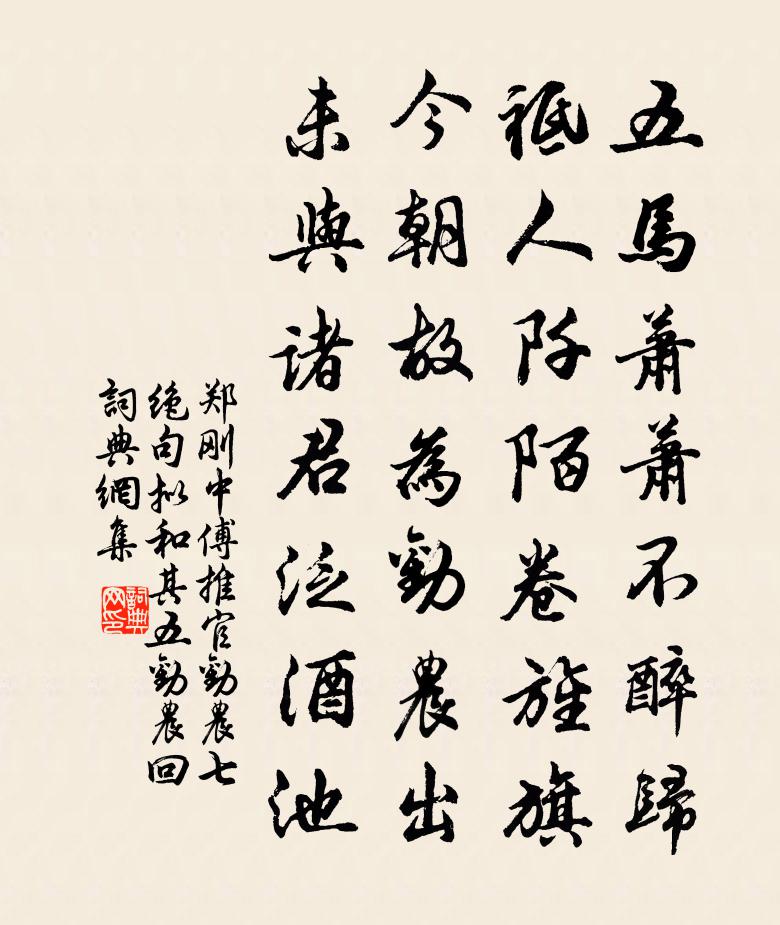 五馬蕭蕭不醉歸
祗人阡陌卷旌旗
今朝故為勸農出
未與諸君泛酒池
郑刚中傅推官勸農七
絶句拟和其五勸農回
詞典網集
詞典网印